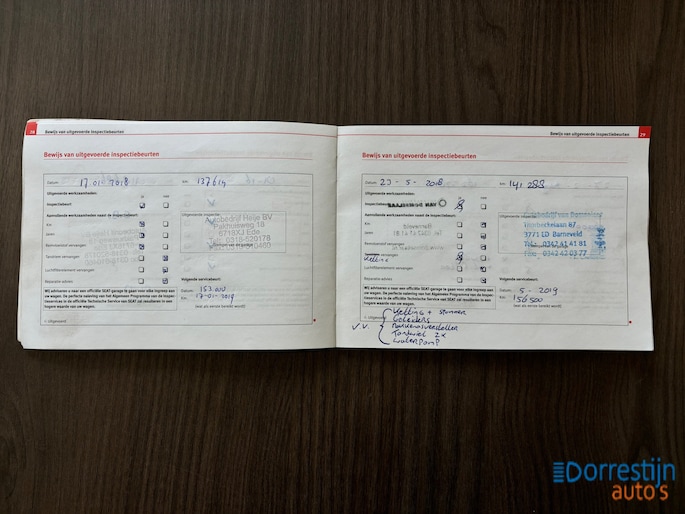 28 Bewijs van uitgevoerde inspectiebeurten
Bewijs van uitgevoerde inspectiebeurten
Datum: 17-01-2018 km: 137614
Uitgevoerde werkzaamheden: ja nee
Inspectiebeurt
Aanvullende werkzaamheden naast de inspectiebeurt:
Km
Jaren
Remvloeistof vervangen
Tandriem vervangen
Luchtfilterelement vervangen
Reparatie advies
Uitgevoerde inspectie:
Autobedrijf Helje BV
Pakhuisweg 18
6718XJ Ede
0318-520178
Stempel van de garage
Volgende servicebeurt:
Datum: 153.000
Km: 17-01-2019
(wat als eerste bereikt wordt)
Wij adviseren u naar een officiële SEAT garage te gaan voor elke ingreep aan
uw wagen. De perfecte naleving van het Algemene Programma van de Inspec-
tieservices in de officiële Technische Service van SEAT zal resulteren in een
hogere waarde van uw wagen.
29 Bewijs van uitgevoerde inspectiebeurten
Bewijs van uitgevoerde inspectiebeurten
Datum: 23-5-2018 km: 141 288
Uitgevoerde werkzaamheden: ja nee
Inspectiebeurt
Aanvullende werkzaamheden naast de inspectiebeurt:
Km
Jaren
Remvloeistof vervangen
Tandriem vervangen
Ketting
Luchtfilterelement vervangen
Reparatie advies
Uitgevoerde inspectie:
3771 ED Barneveld
Tel.: 0342 41 41 81
Fax: 0342 42 03 77
Volgende servicebeurt:
Datum: 5-2019
Km: 156 500
(wat als eerste bereikt wordt)
Wij adviseren u naar een officiële SEAT garage te gaan voor elke ingreep aan
uw wagen. De perfecte naleving van het Algemene Programma van de Inspec-
tieservices in de officiële Technische Service van SEAT zal resulteren in een
hogere waarde van uw wagen.
v.v.
Ketting + spanner
Geleiders
Nokkenasversteller
Tandwiel 2x
Waterpomp
Dorrestijn
auto's